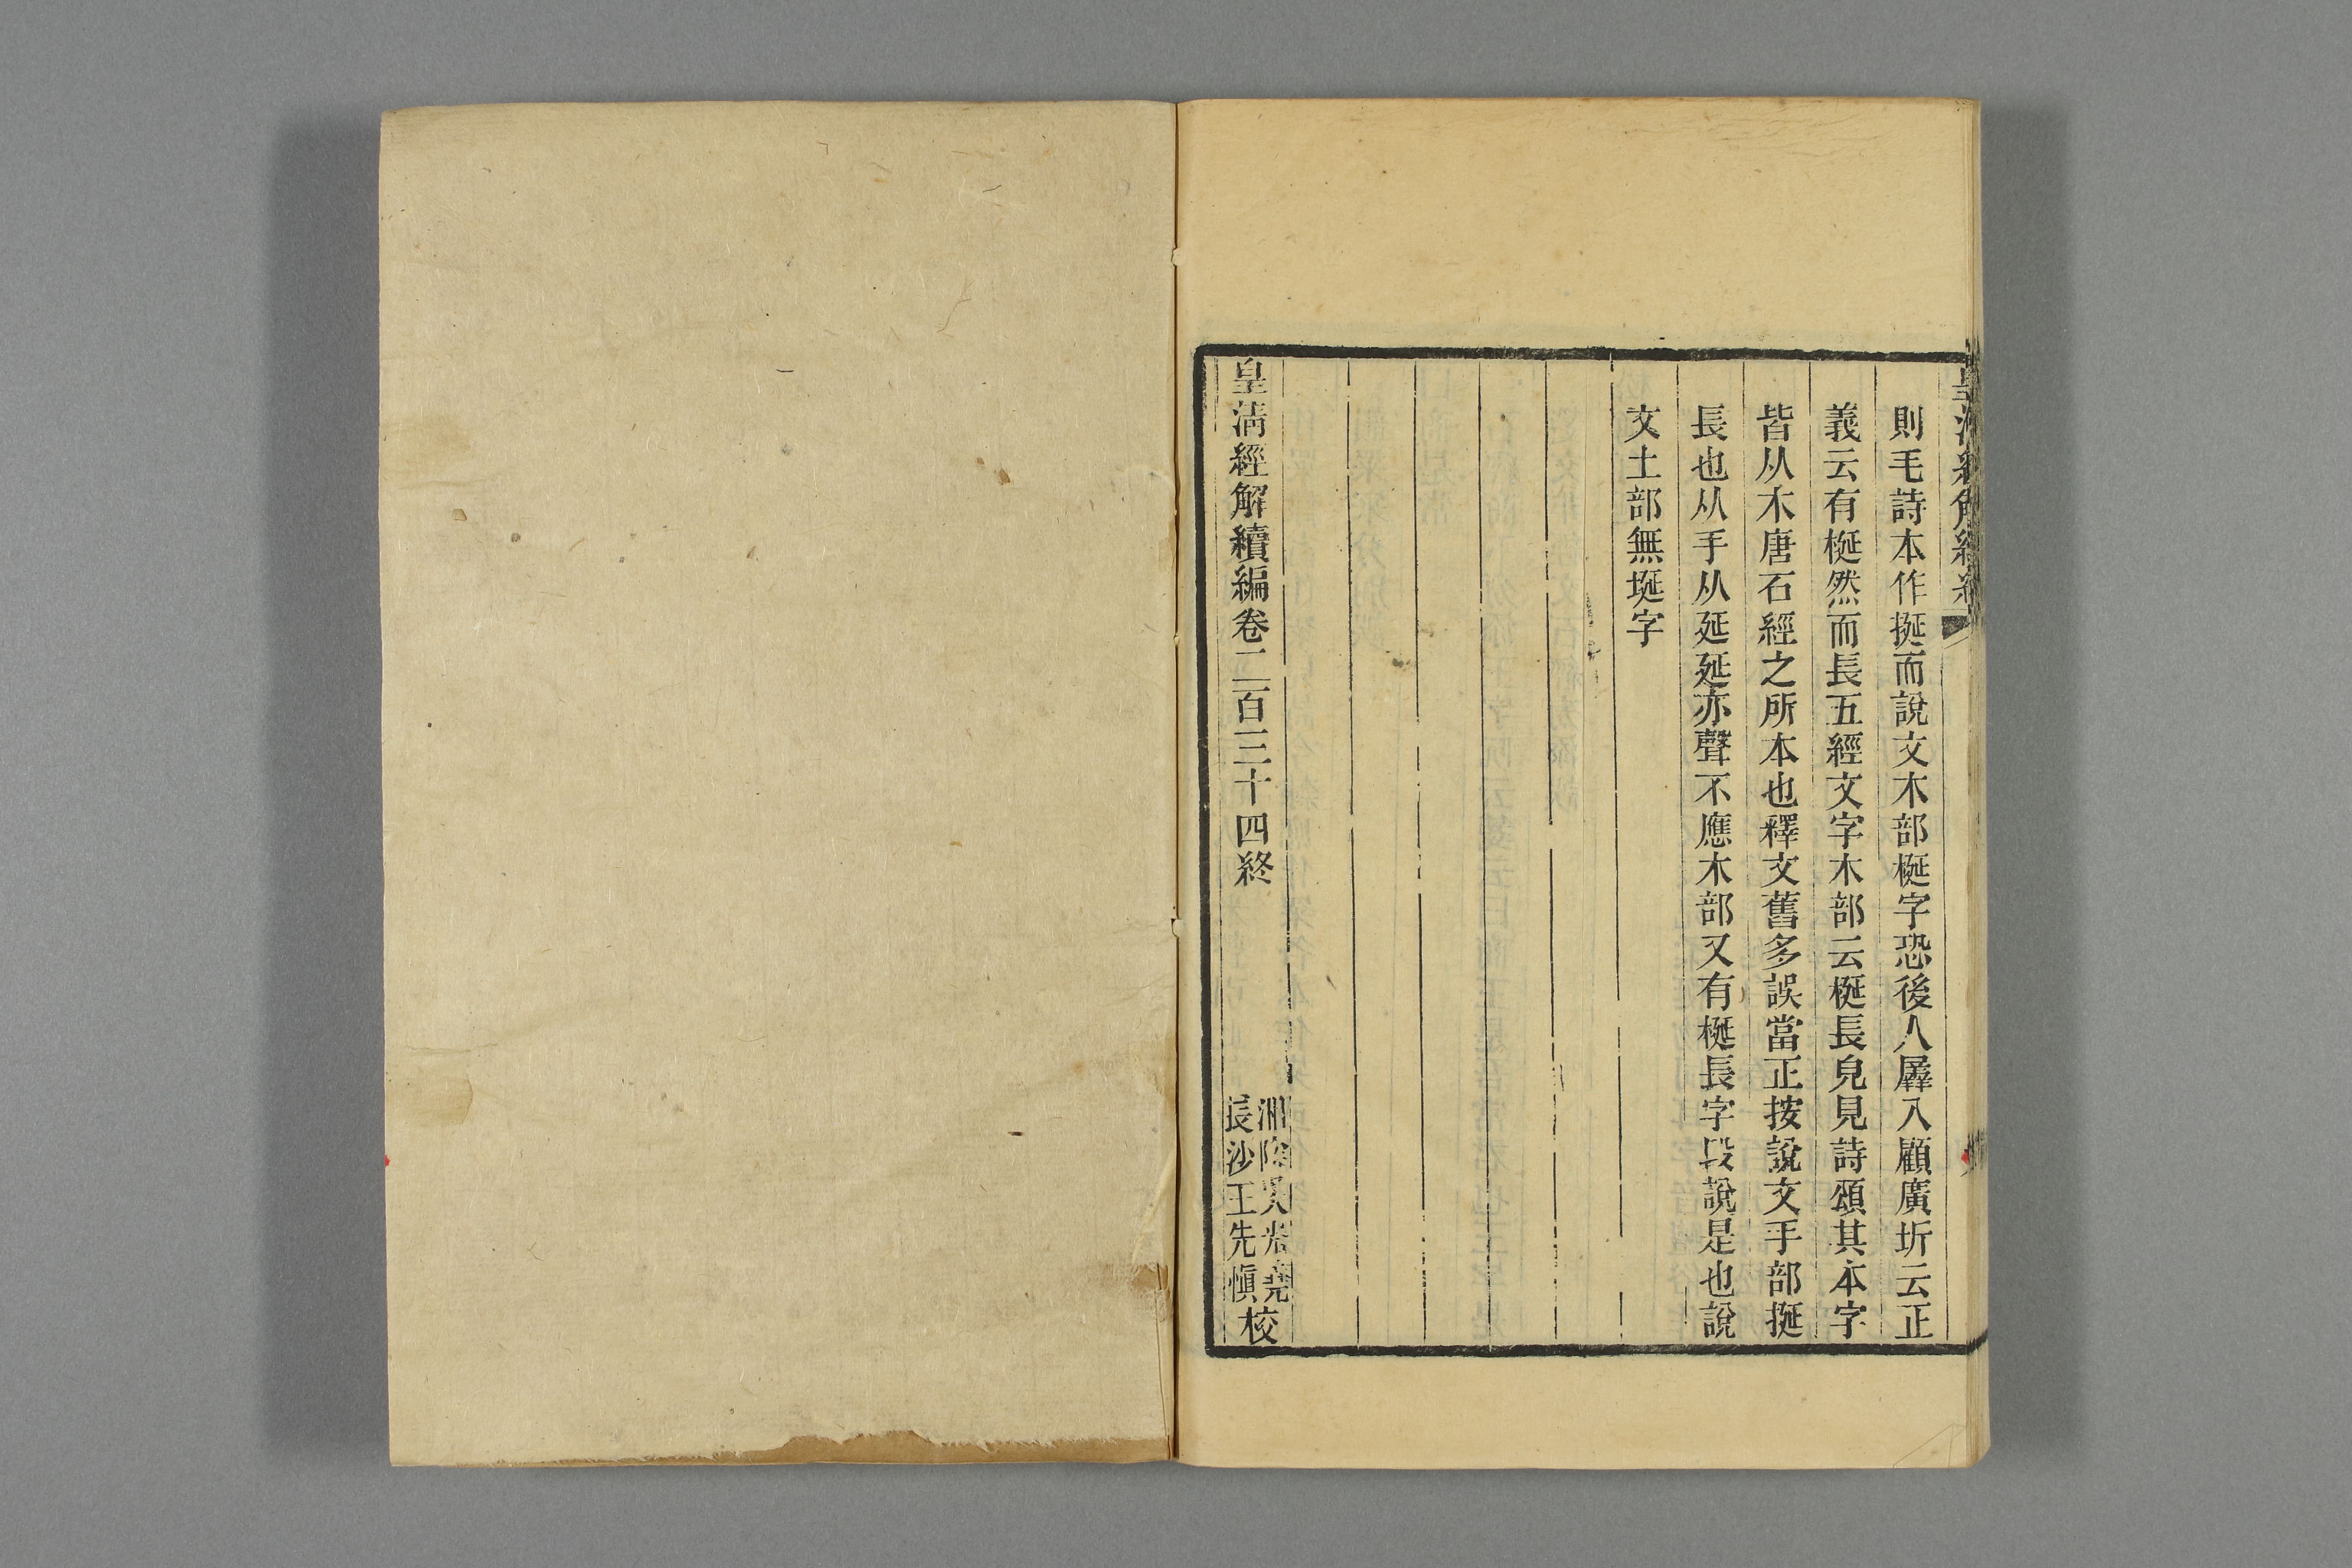 皇清經解續編
則毛詩本作挻而說文木部梴字恐後人羼入顧廣圻云正
義云有梴然而長五經文字木部云梴長皃見詩頌其本字
皆从木唐石經之所本也釋文舊多誤當正按說文手部挻
長也从手从延延亦聲不應木部又有梴長字段說是也說
文土部無埏字
皇清經解續編卷二百三十四終
長沙王先愼校